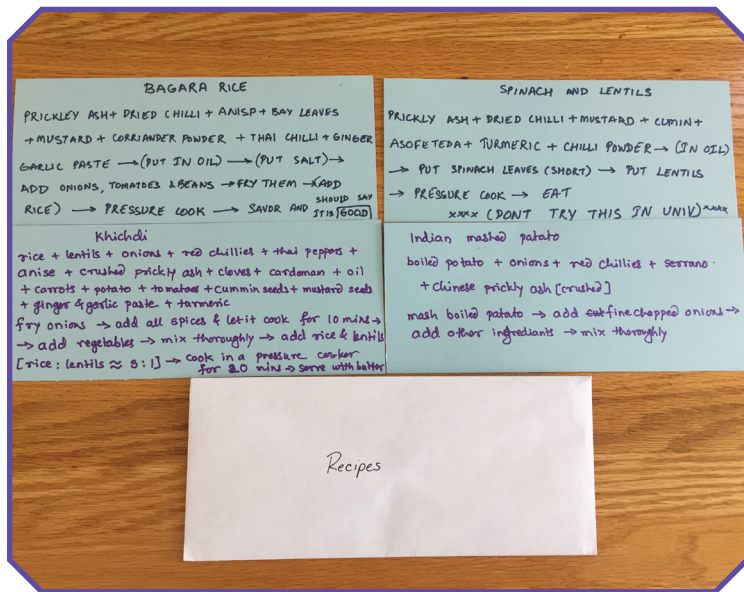 BAGARA RICE
PRICKLEY ASH + DRIED CHILLI + ANISP + BAY LEAVES
+ MUSTARD + CORRIANDER POWDER + THAI CHILLI + GINGER
GARLIC PASTE → (PUT IN OIL) → (PUT SALT) →
ADD ONIONS, TOMATOES & BEANS → FRY THEM → (ADD
RICE) → PRESSURE COOK → SAVOR AND SHOULD SAY
IT IS GOOD
SPINACH AND LENTILS
PRICKLY ASH + DRIED CHILLI + MUSTARD + CUMIN +
ASOFETEDA + TURMERIC + CHILLI POWDER → (IN OIL)
→ PUT SPINACH LEAVES (SHORT) → PUT LENTILS
→ PRESSURE COOK → EAT
xxxx (DONT TRY THIS IN UNIV) xxxx
Khichdi
rice + lentils + onions + red chillies + thai peppers +
anise + crushed prickly ash + cloves + cardoman + oil
+ carrots + potato + tomatoes + cummin seeds + mustard seeds
+ ginger & garlic paste + tarmeric
fry onions → add all spices & let it cook for 10 mins →
→ add vegetables → mix thoroughly → add rice & lentils
[rice : lentils ≈ 3 : 1] → cook in a pressure cooker
for 20 mins → serve with butter
Indian mashed patato
boiled potato + onions + red chillies + serrano
+ Chinese prickly ash [crushed]
mash boiled patato → add fine chopped onions →
add other ingrediants → mix thoroughly
Recipes